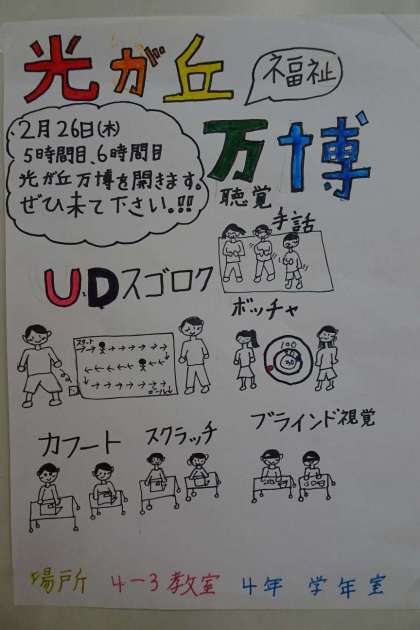 光が丘
福祉
万博
2月26日(木)
5時間目、6時間目
光が丘万博を開きます。
ぜひ来て下さい。!!
聴覚
手話
U.Dスゴロク
スタート
ゴール
ボッチャ
100
カフート
スクラッチ
ブラインド視覚
場所 4-3教室 4年 学年室